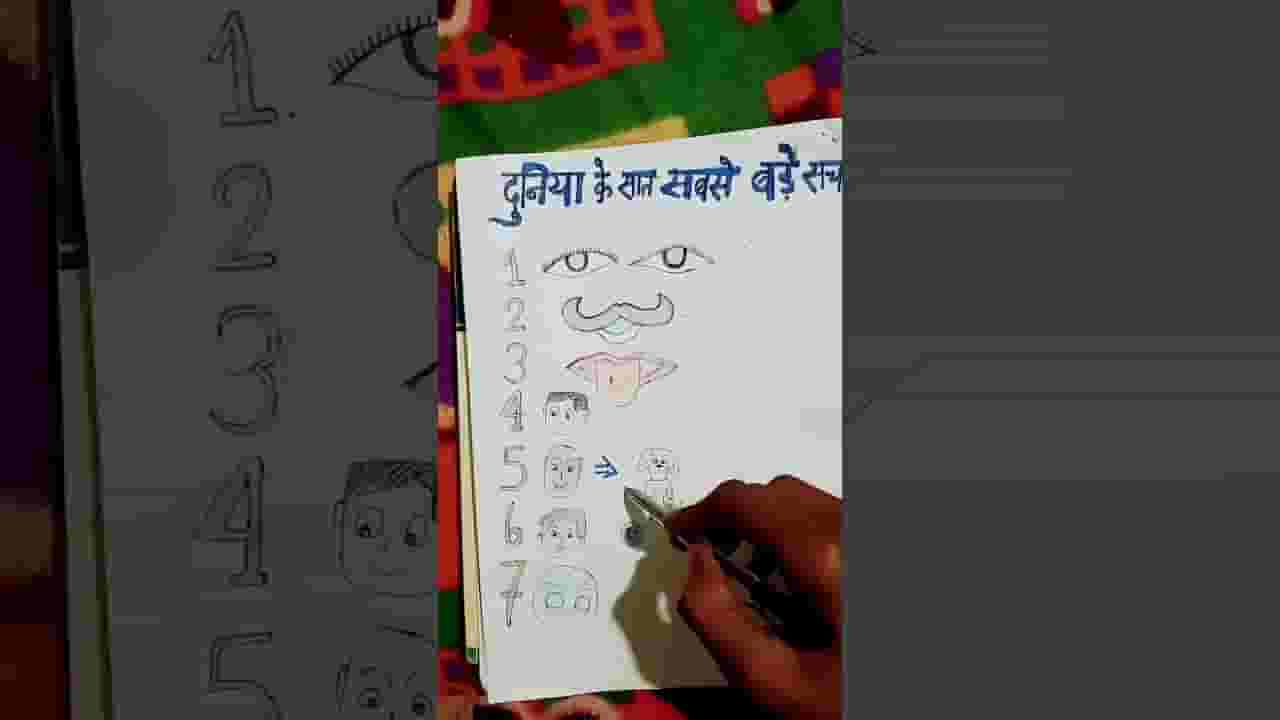 दुनिया के सात सबसे बड़े सच
1
2
3
4
5 ⇒
6
7
1.
2
3
4
5